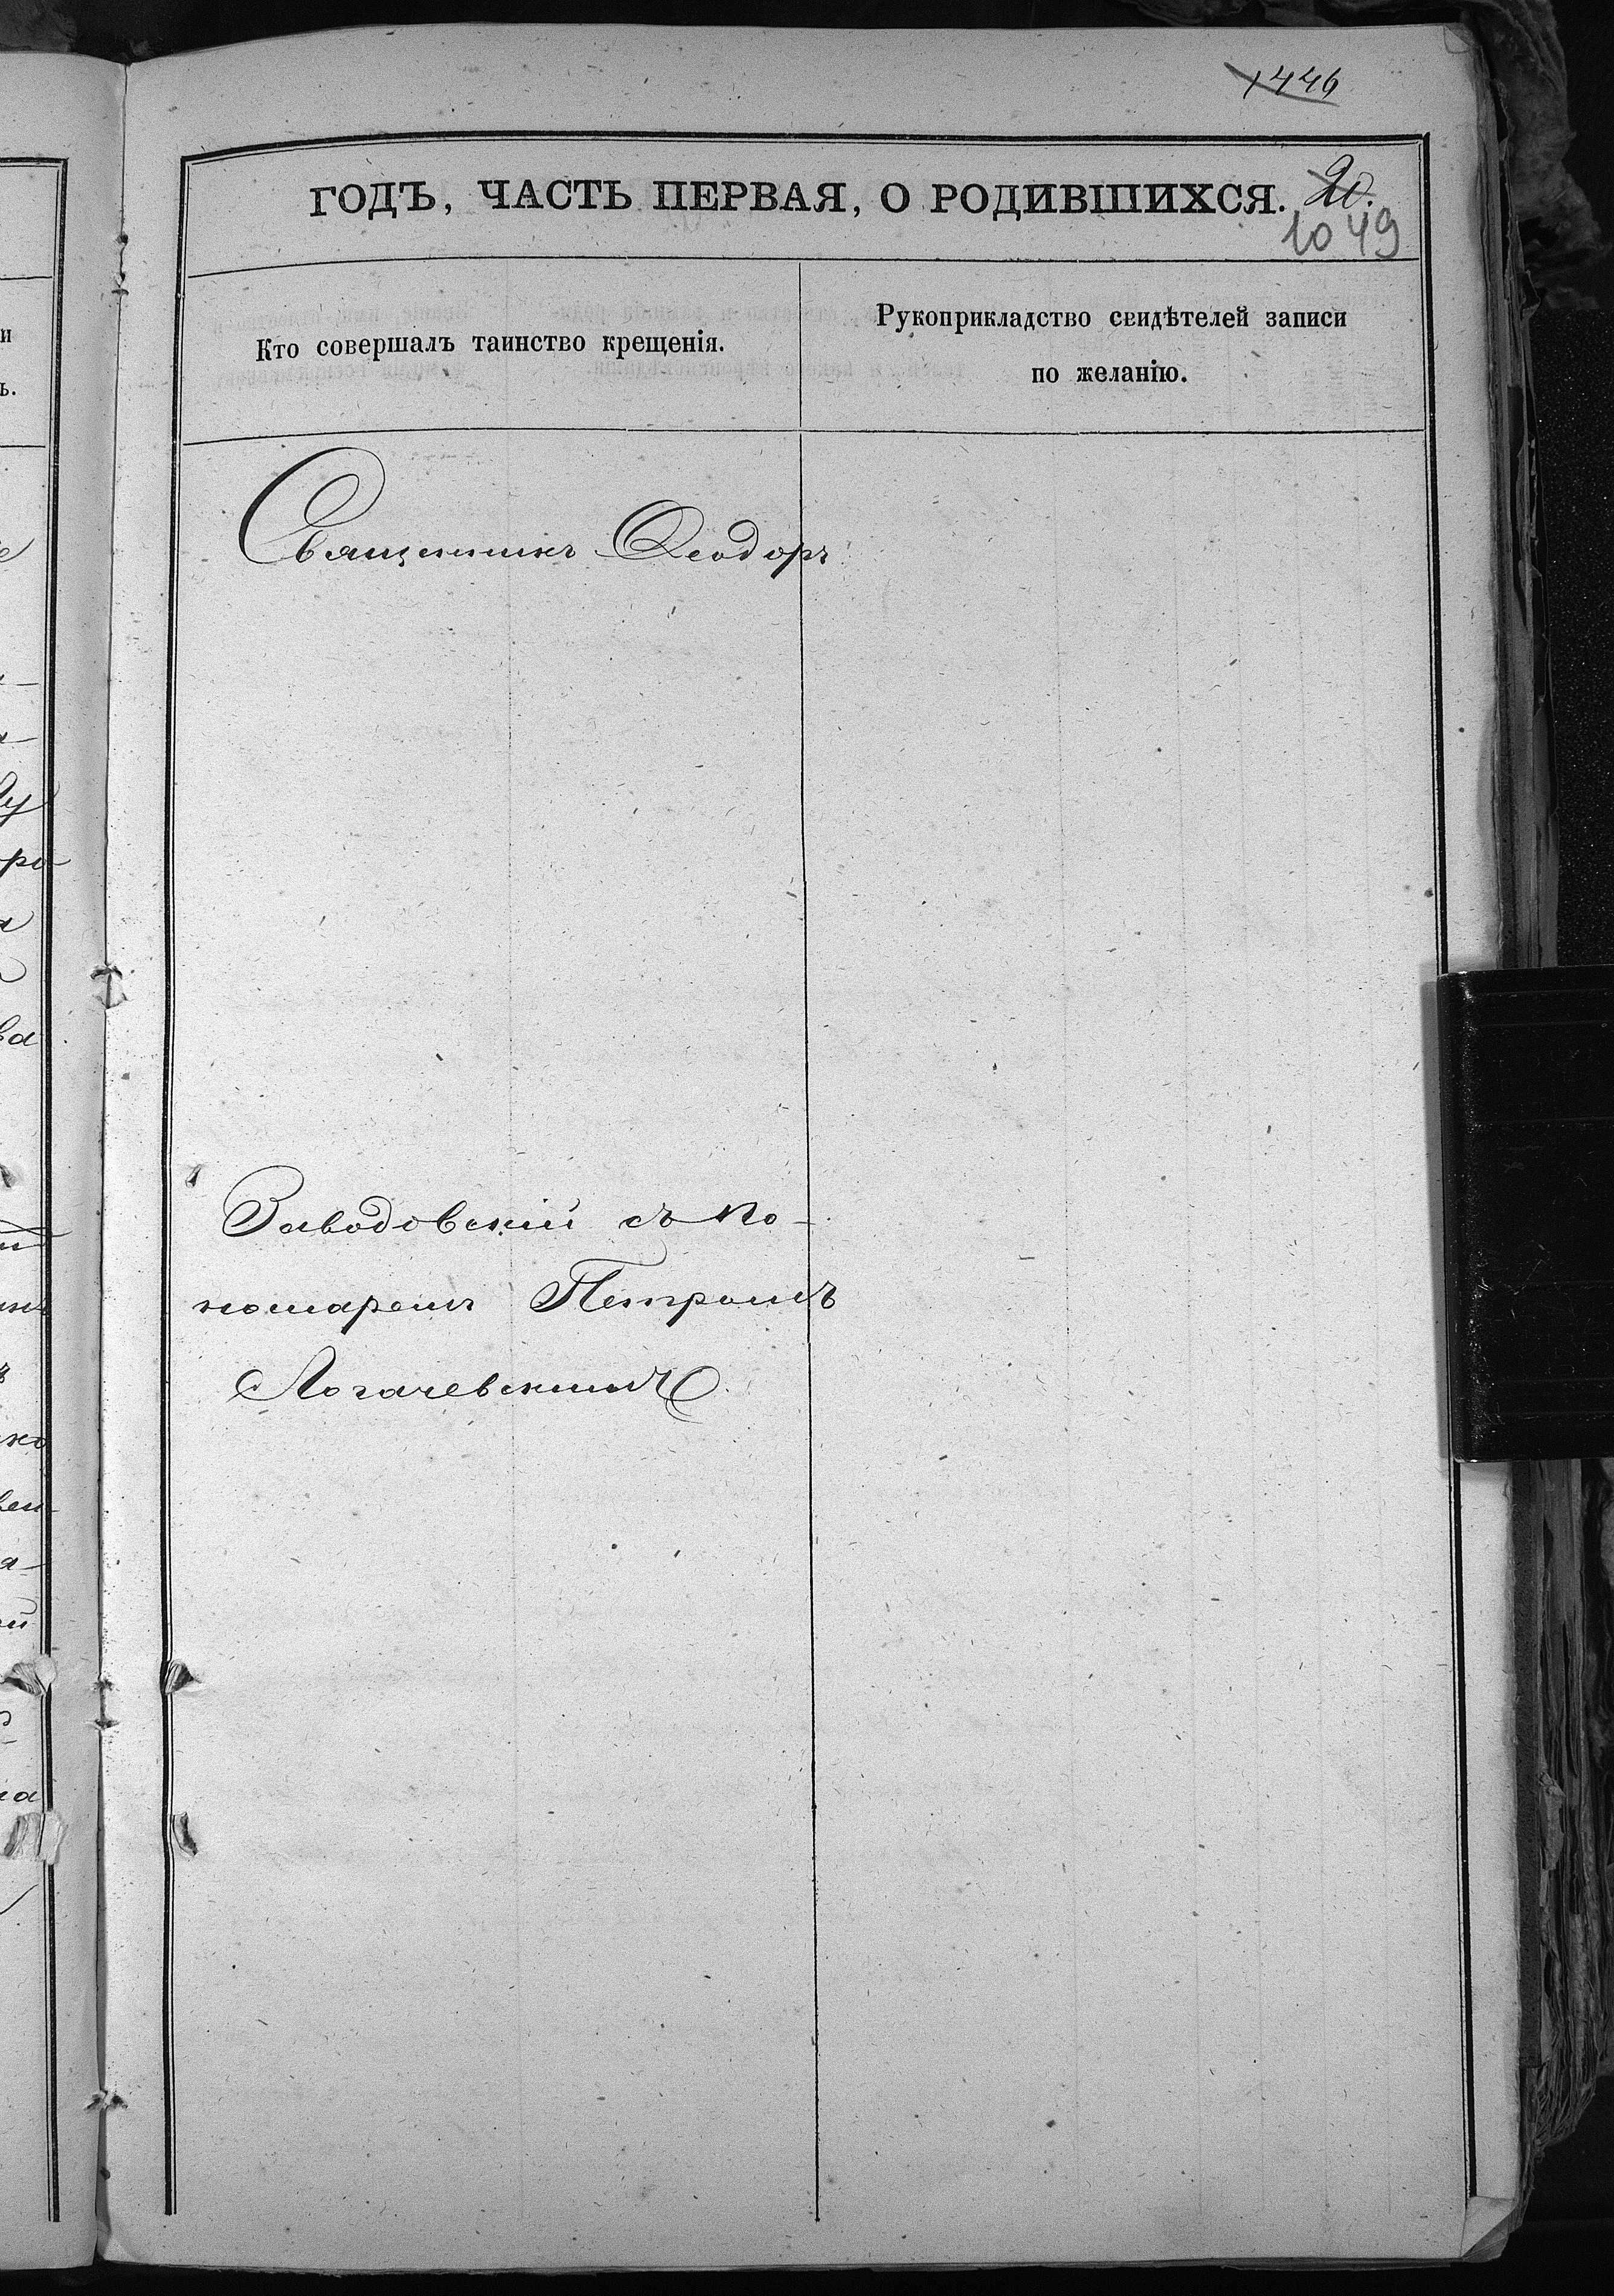 1446
ГОДЪ, ЧАСТЬ ПЕРВАЯ, О РОДИВШИХСЯ. 20.
1049
Кто совершалъ таинство крещенія.
Рукоприкладство свидѣтелей записи
по желанію.
Священникъ Ѳеодоръ
Заводовскій съ по-
номаремъ Петромъ
Логачевскимъ.